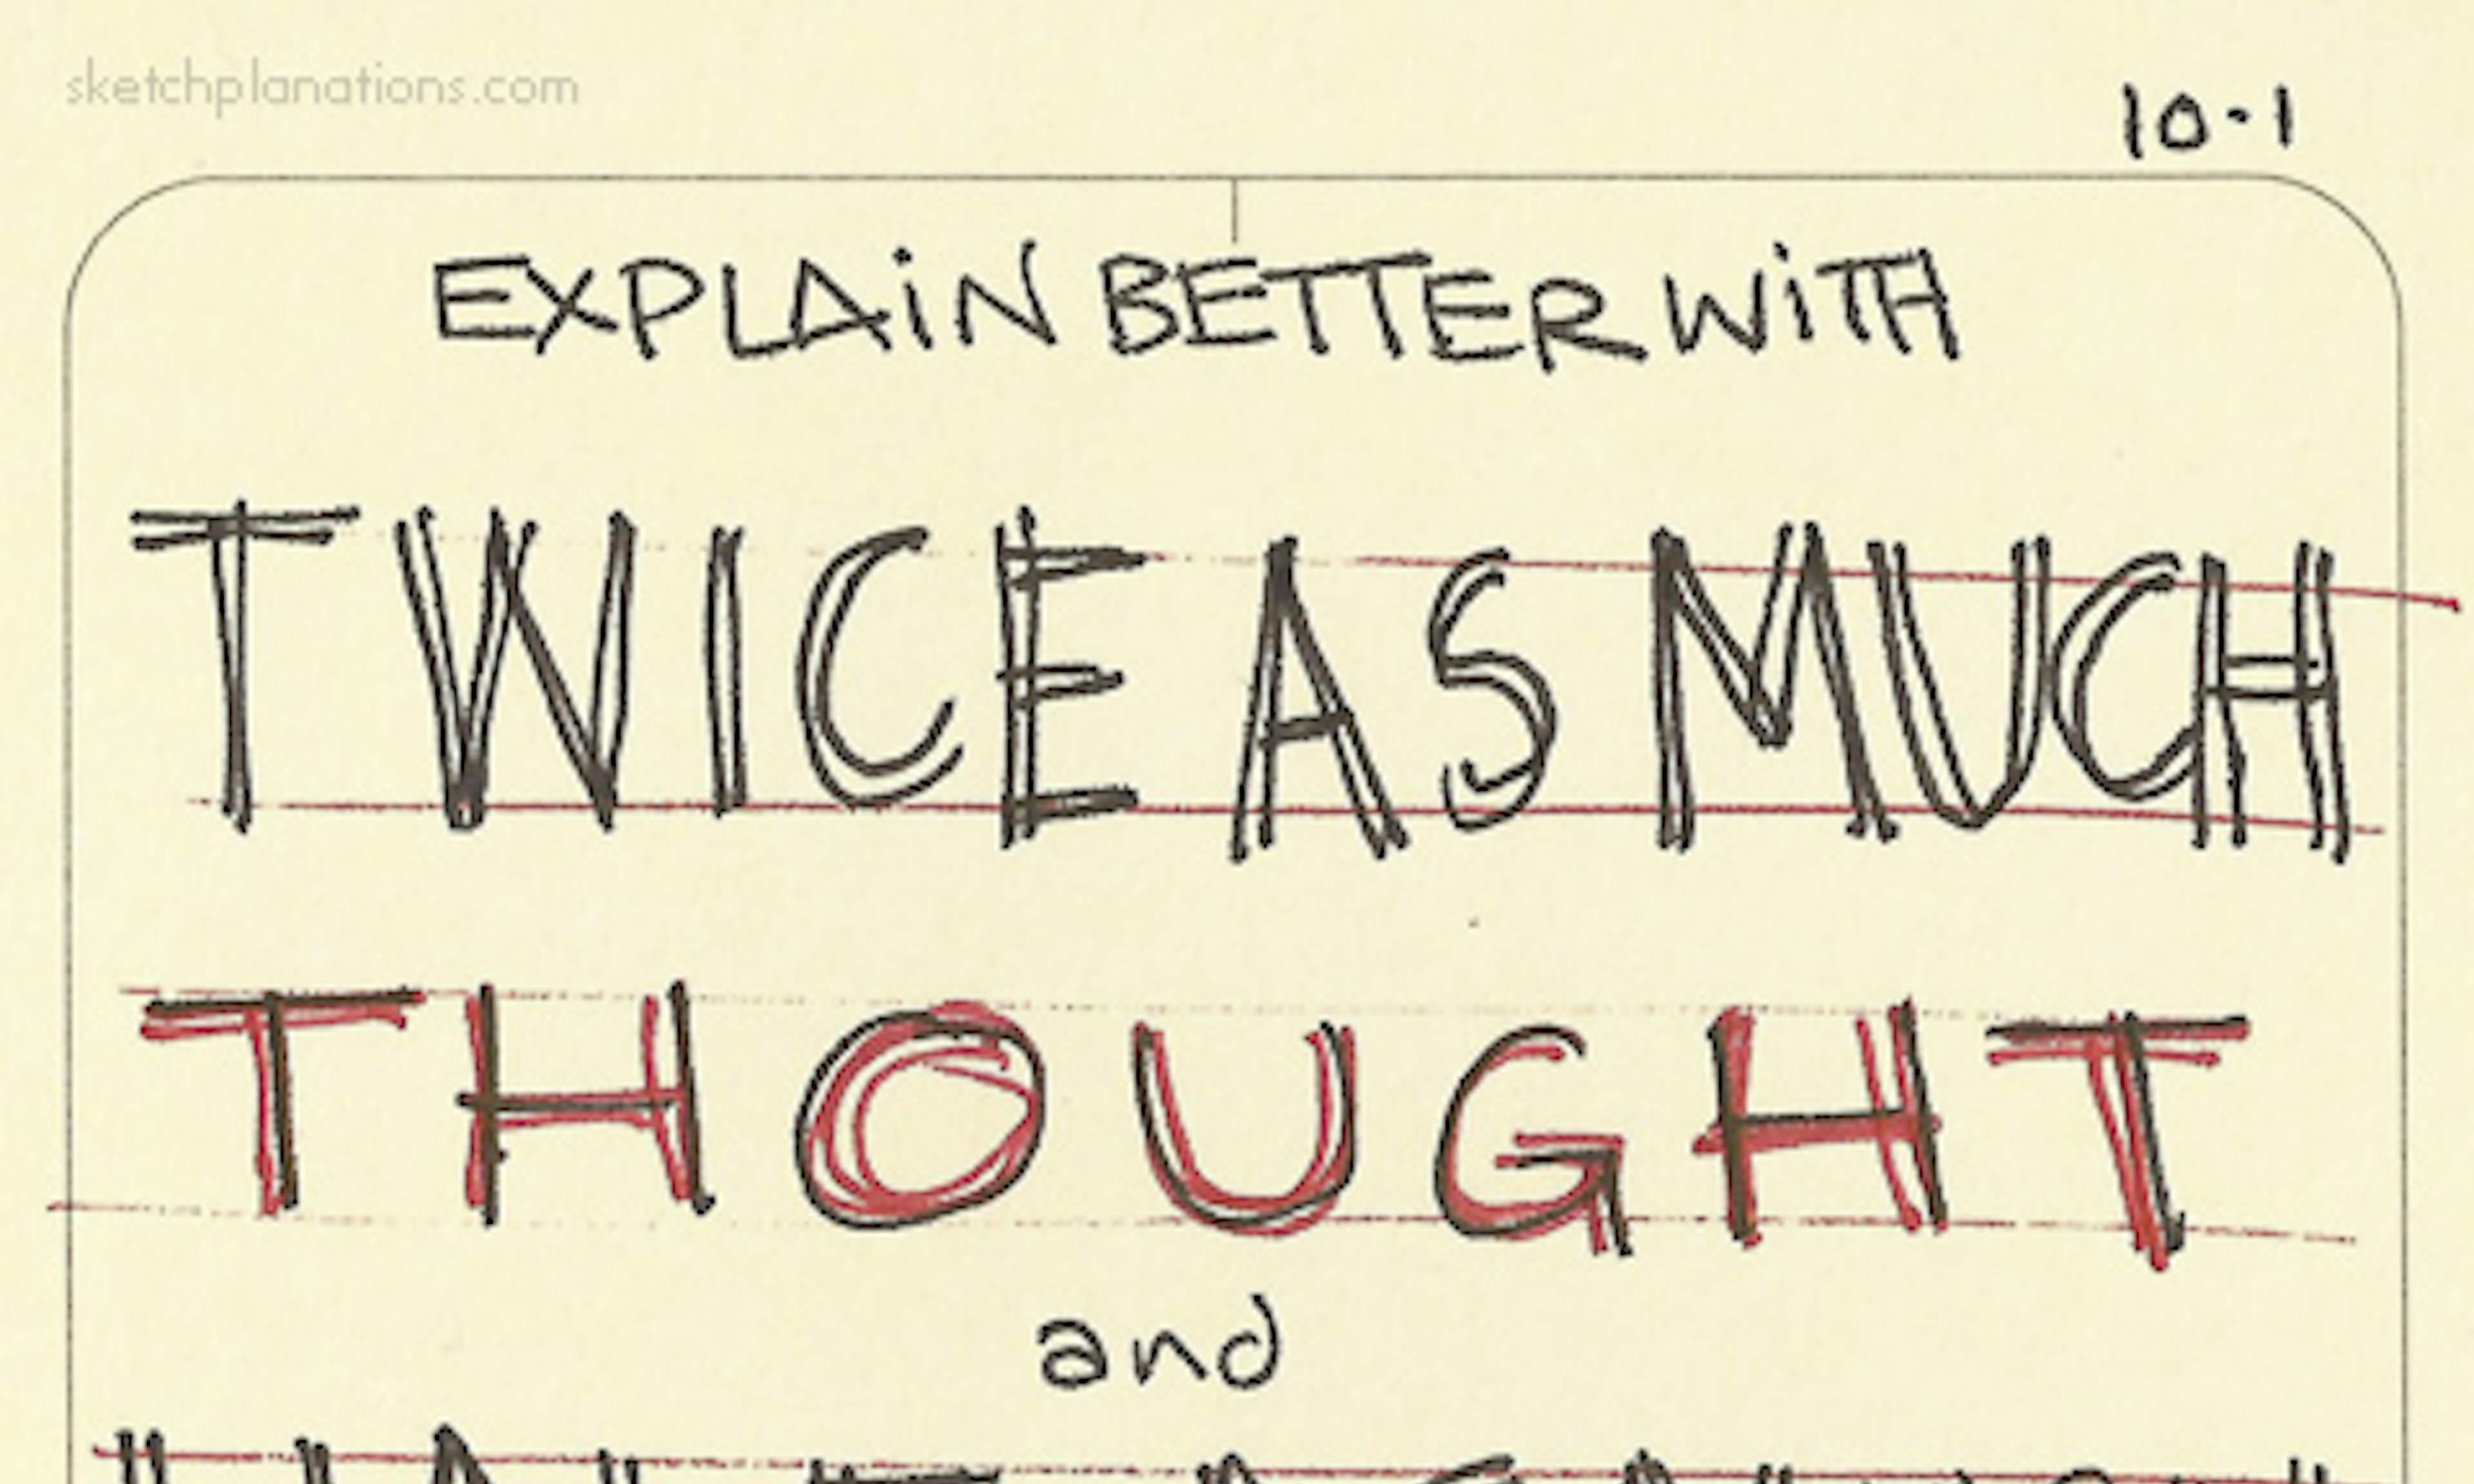 sketchplanations.com
10.1
EXPLAiN BETTER WiTH
TWICE AS MUCH
THOUGHT
and